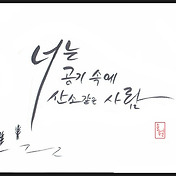 너는
공기 속에
산소같은 사람